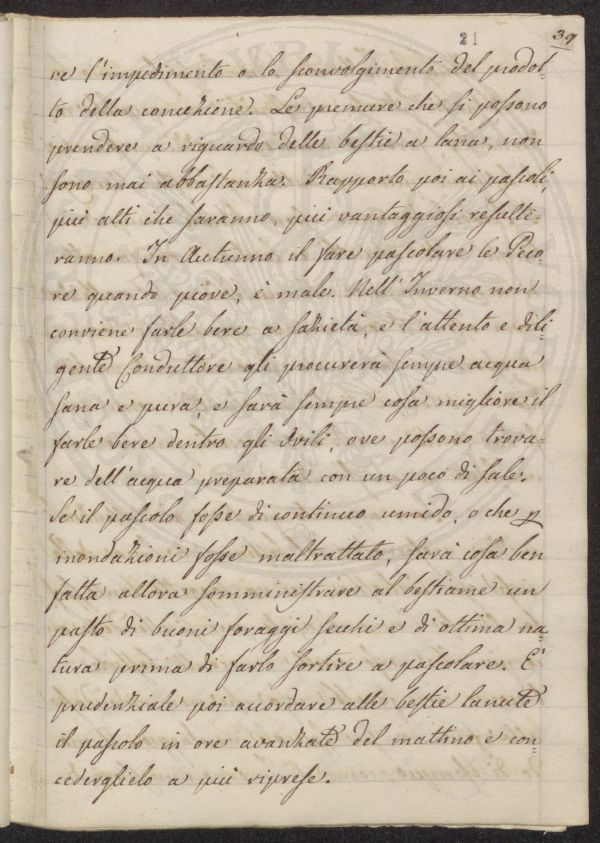 21 39
re l'impedimento o lo sconvolgimento del prodot=
to della concezione. Le premure che si possono
prendere a riguardo delle bestie a lana, non
sono mai abbastanza. Rapporto poi ai pascoli,
più alti che saranno, più vantaggiosi resulte=
ranno. In Autunno il fare pascolare le Peco=
re quando piove, è male. Nell'Inverno non
conviene farle bere a sazietà, e l'attento e dili=
gente Conduttore gli procurerà sempre acqua
sana e pura, e sarà sempre cosa migliore il
farle bere dentro gli Ovili, ove possono trova=
re dell'acqua preparata con un poco di sale.
Se il pascolo fosse di continuo umido, o che p
inondazioni fosse maltrattato, sarà cosa ben
fatta allora somministrare al bestiame un
pasto di buoni foraggi secchi e di ottima na=
tura prima di farlo sortire a pascolare. E'
prudenziale poi accordare alle bestie lanute
il pascolo in ore avanzate del mattino e con=
cederglielo a più riprese.